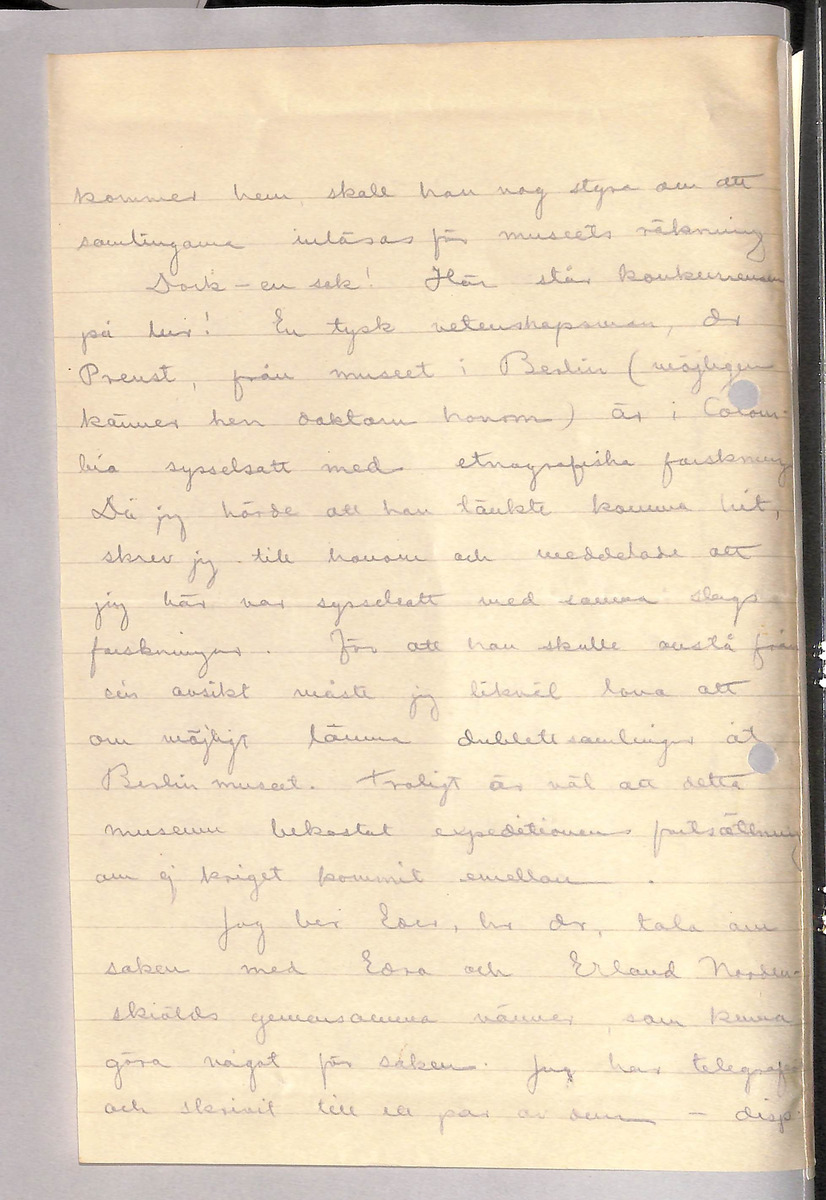 kommer hem, skall han nog styra om att
samlingarna inlösas för museets räkning
Dock – en sak! Här står konkurrensen
på lur! En tysk vetenskapsman, Dr
Preust, från museet i Berlin (möjligen
känner herr doktorn honom) är i Colom-
bia sysselsatt med etnografiska forskning
Då jag hörde att han tänkte komma hit,
skrev jag till honom och meddelade att
jag här var sysselsatt med samma slags
forskningar. För att han skulle avstå från
sin avsikt måste jag likväl lova att
om möjligt lämna dublettsamlingar åt
Berlin museet. Troligt är väl att detta
museum bekostat expeditionens fortsättning
om ej kriget kommit emellan.
Jag ber Eder, hr Dr, tala om
saken med Edra och Erland Norden-
skiölds gemensamma vänner, som kunna
göra något för saken. Jag har telegraf
och skrivit till ett par av dem – disp